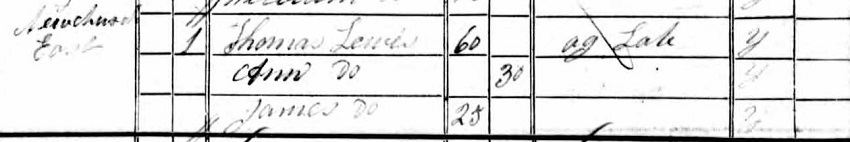 Newchurch
East 1 Thomas Lewis 60 ag Lab Y
Ann Do 30 Y
James Do 25 Y